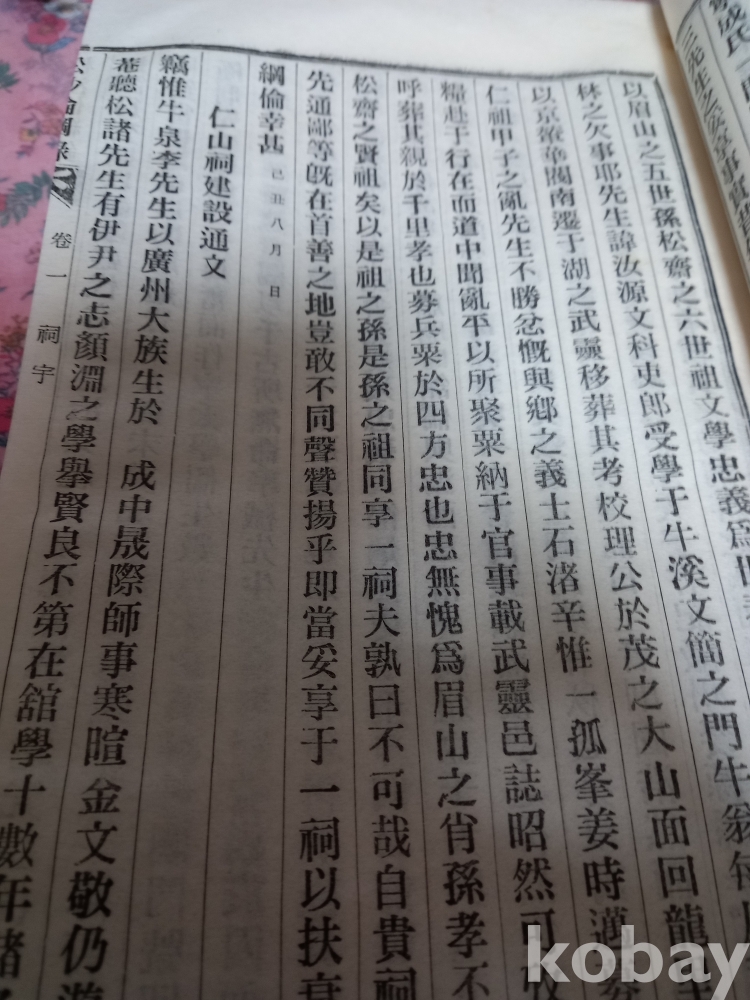 以眉山之五世孫松齋之六世祖文學忠義爲世
林之欠事耶先生諱汝源文科吏郎受學于牛溪文簡之門牛翁每
以京
閩南遷于湖之武靈移葬其考校理公於茂之大山面回龍
仁祖甲子之亂先生不勝忿慨與鄉之義士石渚辛惟一孤峯姜時邁募
糧赴于行在而道中聞亂平以所聚粟納于官事載武靈邑誌昭然可攷
呼葬其親於千里孝也募兵粟於四方忠也忠無愧爲眉山之肖孫孝不
松齋之賢祖矣以是祖之孫是孫之祖同享一祠夫孰曰不可哉自貴祠
先通鄙等旣在首善之地豈敢不同聲贊揚乎卽當妥享于一祠以扶衰
綱倫幸甚 己丑八月 日
仁山祠建設通文
竊惟牛泉李先生以廣州大族生於 成中晟際師事寒暄金文敬仍遊
菴聽松諸先生有伊尹之志顏淵之學舉賢良不第在舘學十數年諸
卷一 祠宇
kobay